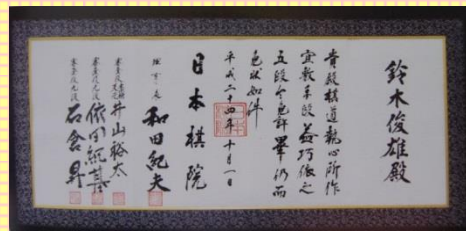 鈴木俊雄殿
貴殿棋道執心所作
宜敷手段益巧依之
五段令免許畢仍而
免状如件
平成二十四年十月一日
日本棋院
理事長 和田紀夫
井山裕太
審査役九段 依田紀基
審査役九段 石倉昇